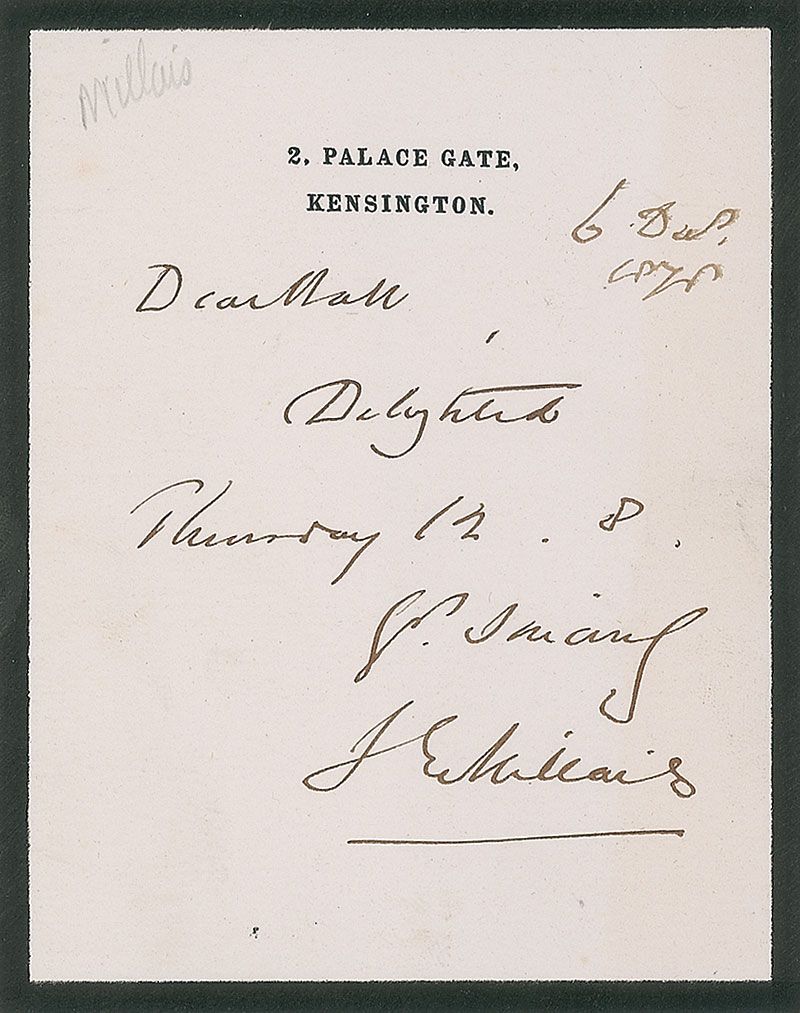 Millais
2, PALACE GATE,
KENSINGTON.
6 Dec.
1878
Dear
Delighted
Thursday 12 . 8 .
J E Millais